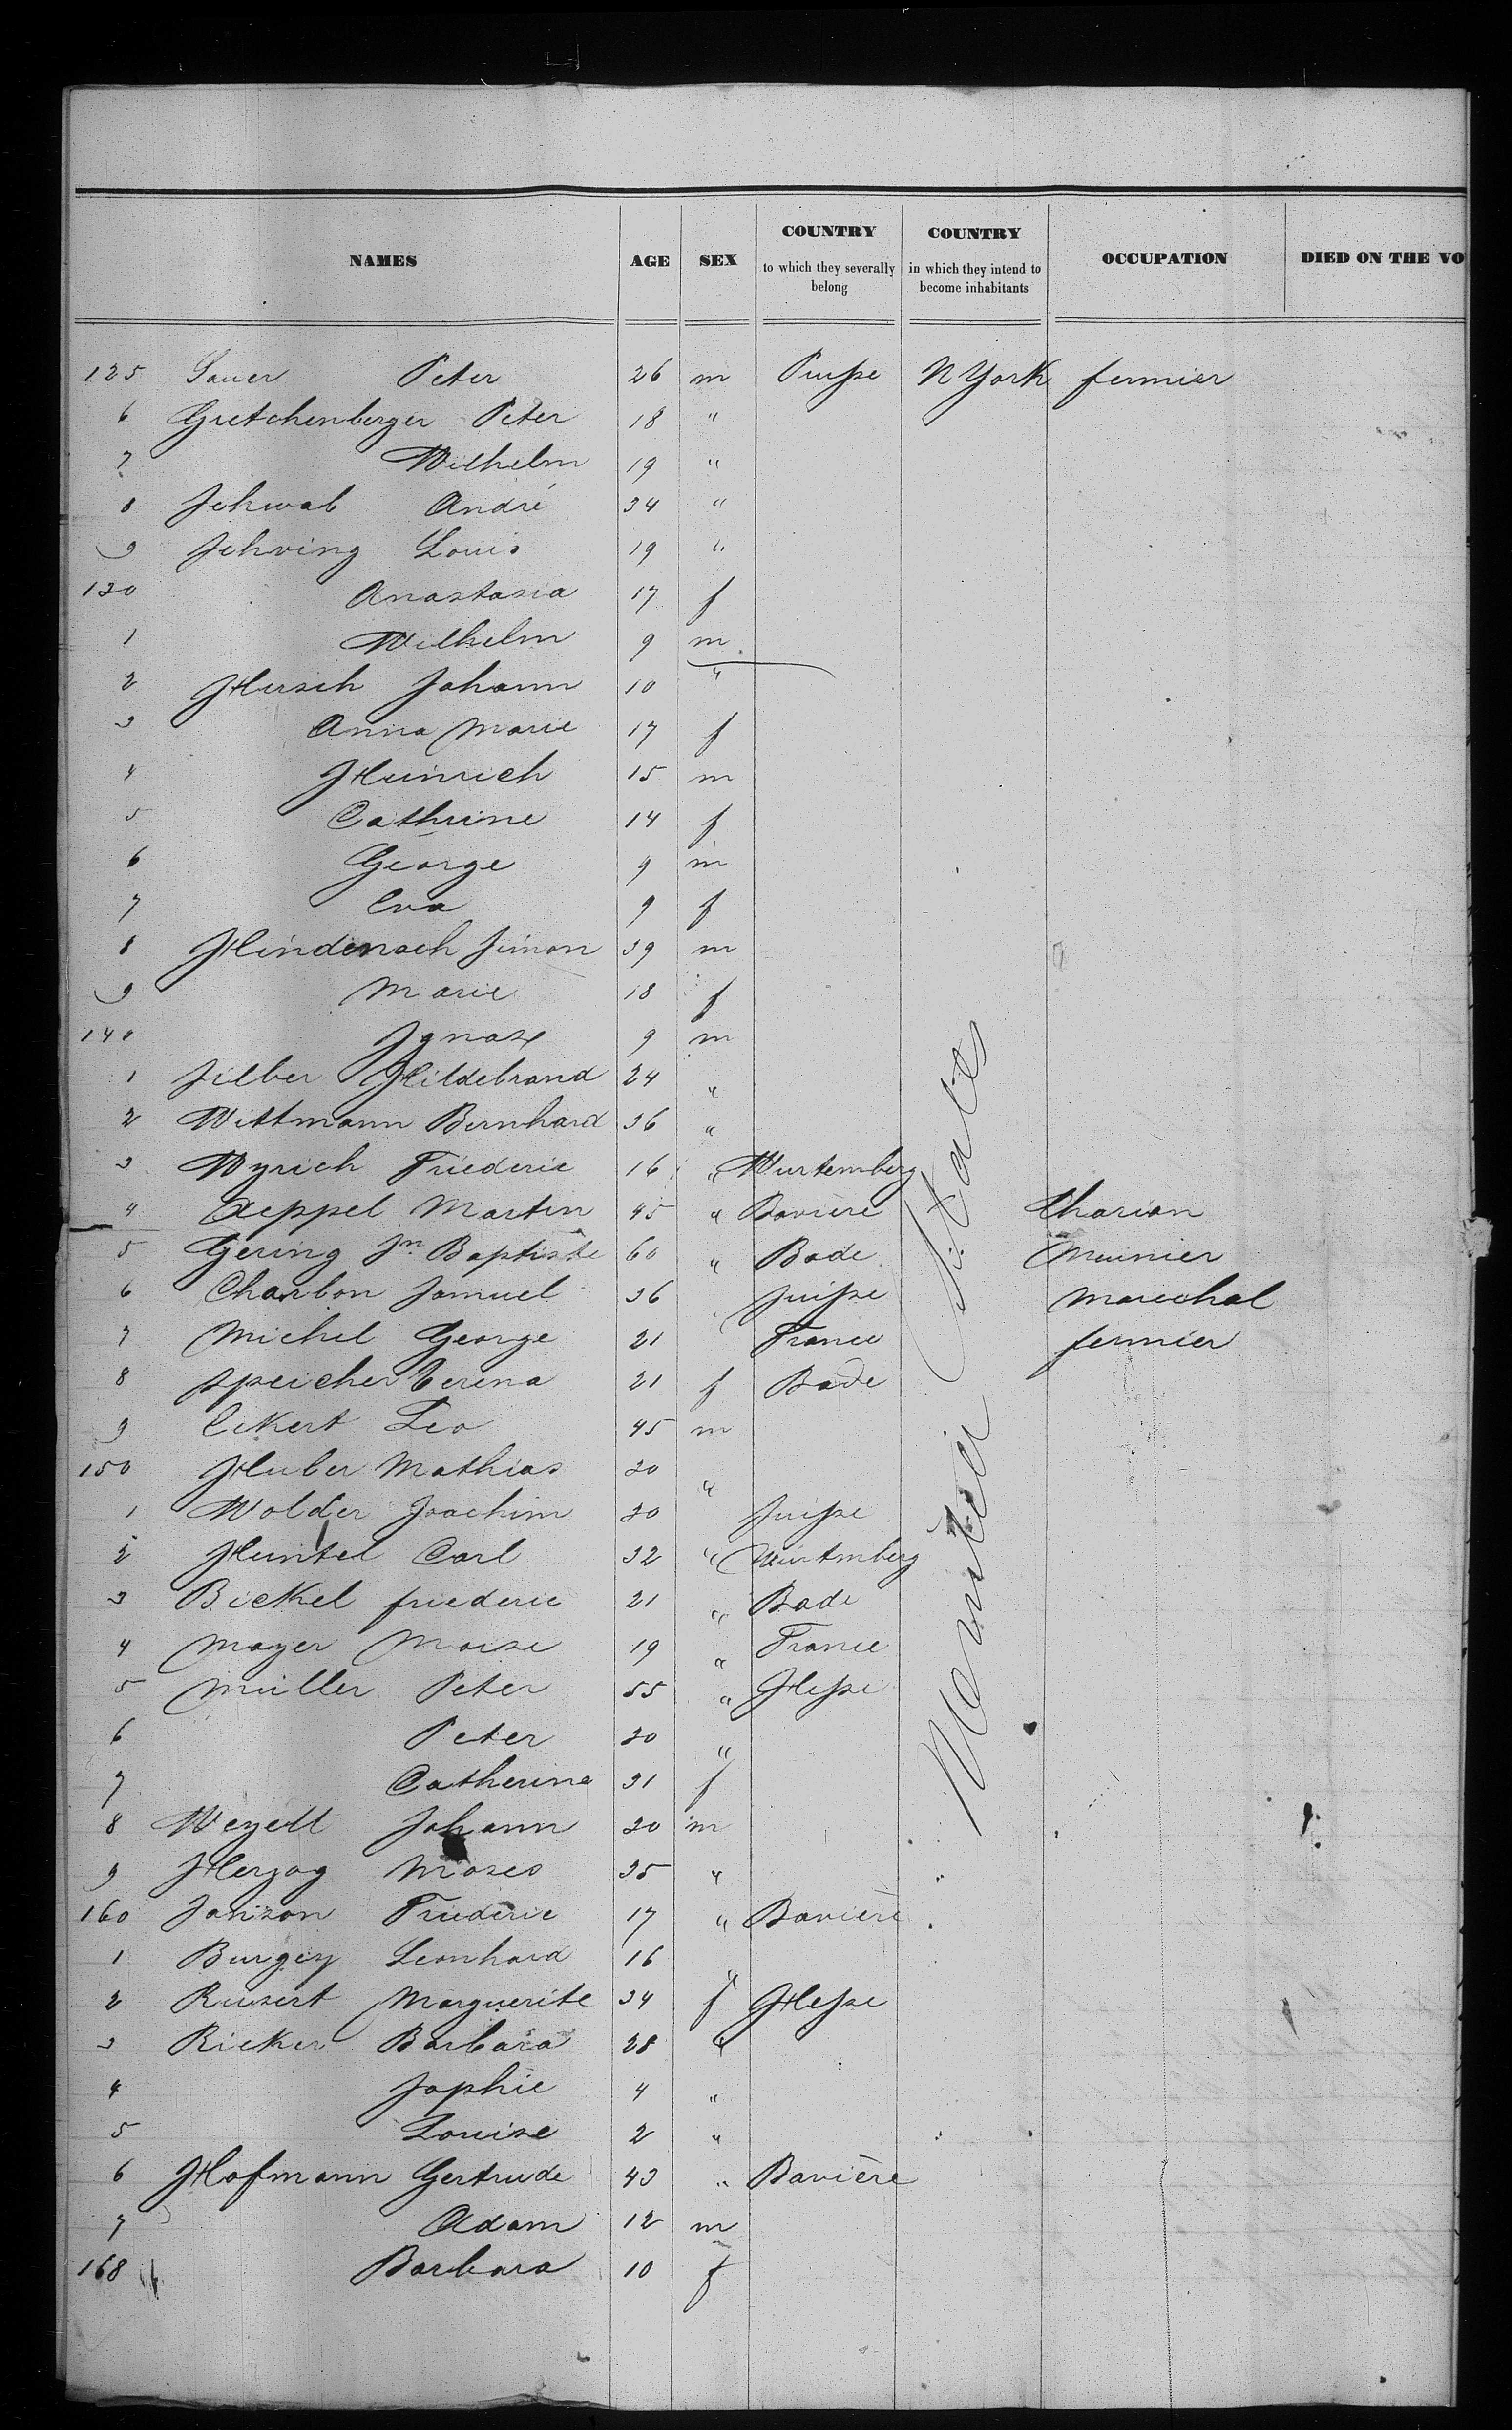 NAMES AGE SEX COUNTRY to which they severally belong COUNTRY in which they intend to become inhabitants OCCUPATION DIED ON THE VO
125 Sauer Peter 26 m Prusse N York fermier
6 Gretchenberger Peter 18 "
7 Wilhelm 19 "
8 Schwab André 34 "
9 Schving Louis 19 "
130 Anastasia 17 f
1 Wilhelm 9 m
2 Hirsch Johann 10 "
3 Anna Marie 17 f
4 Heinrich 15 m
5 Cathrine 14 f
6 George 9 m
7 Eva 9 f
8 Hindenach Simon 39 m
9 Marie 18 f
140 Ignaz 9 m
1 Silber Hildebrand 24 "
2 Wittmann Bernhard 36 "
3 Wyrich Friederic 16 " Wurtemberg
4 Aeppel Martin 45 " Bavière Charion
5 Gering Jn Baptiste 60 " Bade Meunier
6 Charbon Samuel 36 Suisse Marechal
7 Michel George 21 France fermier
8 Speicher Verena 21 f Bade
9 Eckert Leo 45 m
150 Huber Mathias 30 "
1 Wolder Joachim 30 Suisse
2 Huntel Carl 32 " Würtmberg
3 Bickel friederic 21 " Bade
4 Mayer Moise 19 " France
5 Müller Peter 55 " Hesse
6 Peter 30 "
7 Catherine 31 f
8 Weyell Johann 30 m
9 Herzog Moses 35 "
160 Janson Friederic 17 " Bavière
1 Burgey Leonhard 16 "
2 Rusert Marguerite 34 f Hesse
3 Ricker Barbara 28 "
4 Sophie 4 "
5 Louise 2 "
6 Hofmann Gertrude 43 " Bavière
7 Adam 12 m
168 Barbara 10 f